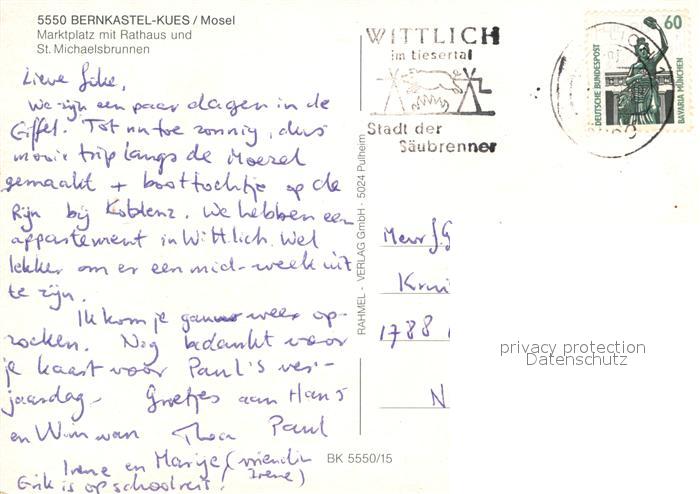 5550 BERNKASTEL-KUES / Mosel
Marktplatz mit Rathaus und
St. Michaelsbrunnen
Lieve
we zijn een paar dagen in de
Eiffel. Tot nu toe zonnig, dus
mooie trip langs de Moezel
gemaakt + boottochtje op de
Rijn bij Koblenz. We hebben een
appartement in Wittlich. Wel
lekker om er een mid-week uit
te zijn.
Ik kom je gauw weer op-
zoeken. Nog bedankt voor
je kaart voor Paul's ver-
jaardag. Groetjes aan Hans
en Wim van Thea Paul
Irene en Marije (vriendin
Irene)
Erik is op schoolreis!
WITTLICH
im Liesertal
Stadt der
Säubrenner
60
DEUTSCHE BUNDESPOST
BAVARIA MÜNCHEN
RAHMEL - VERLAG GmbH - 5024 Pulheim
Mevr J.G
1788
N
BK 5550/15
privacy protection
Datenschutz